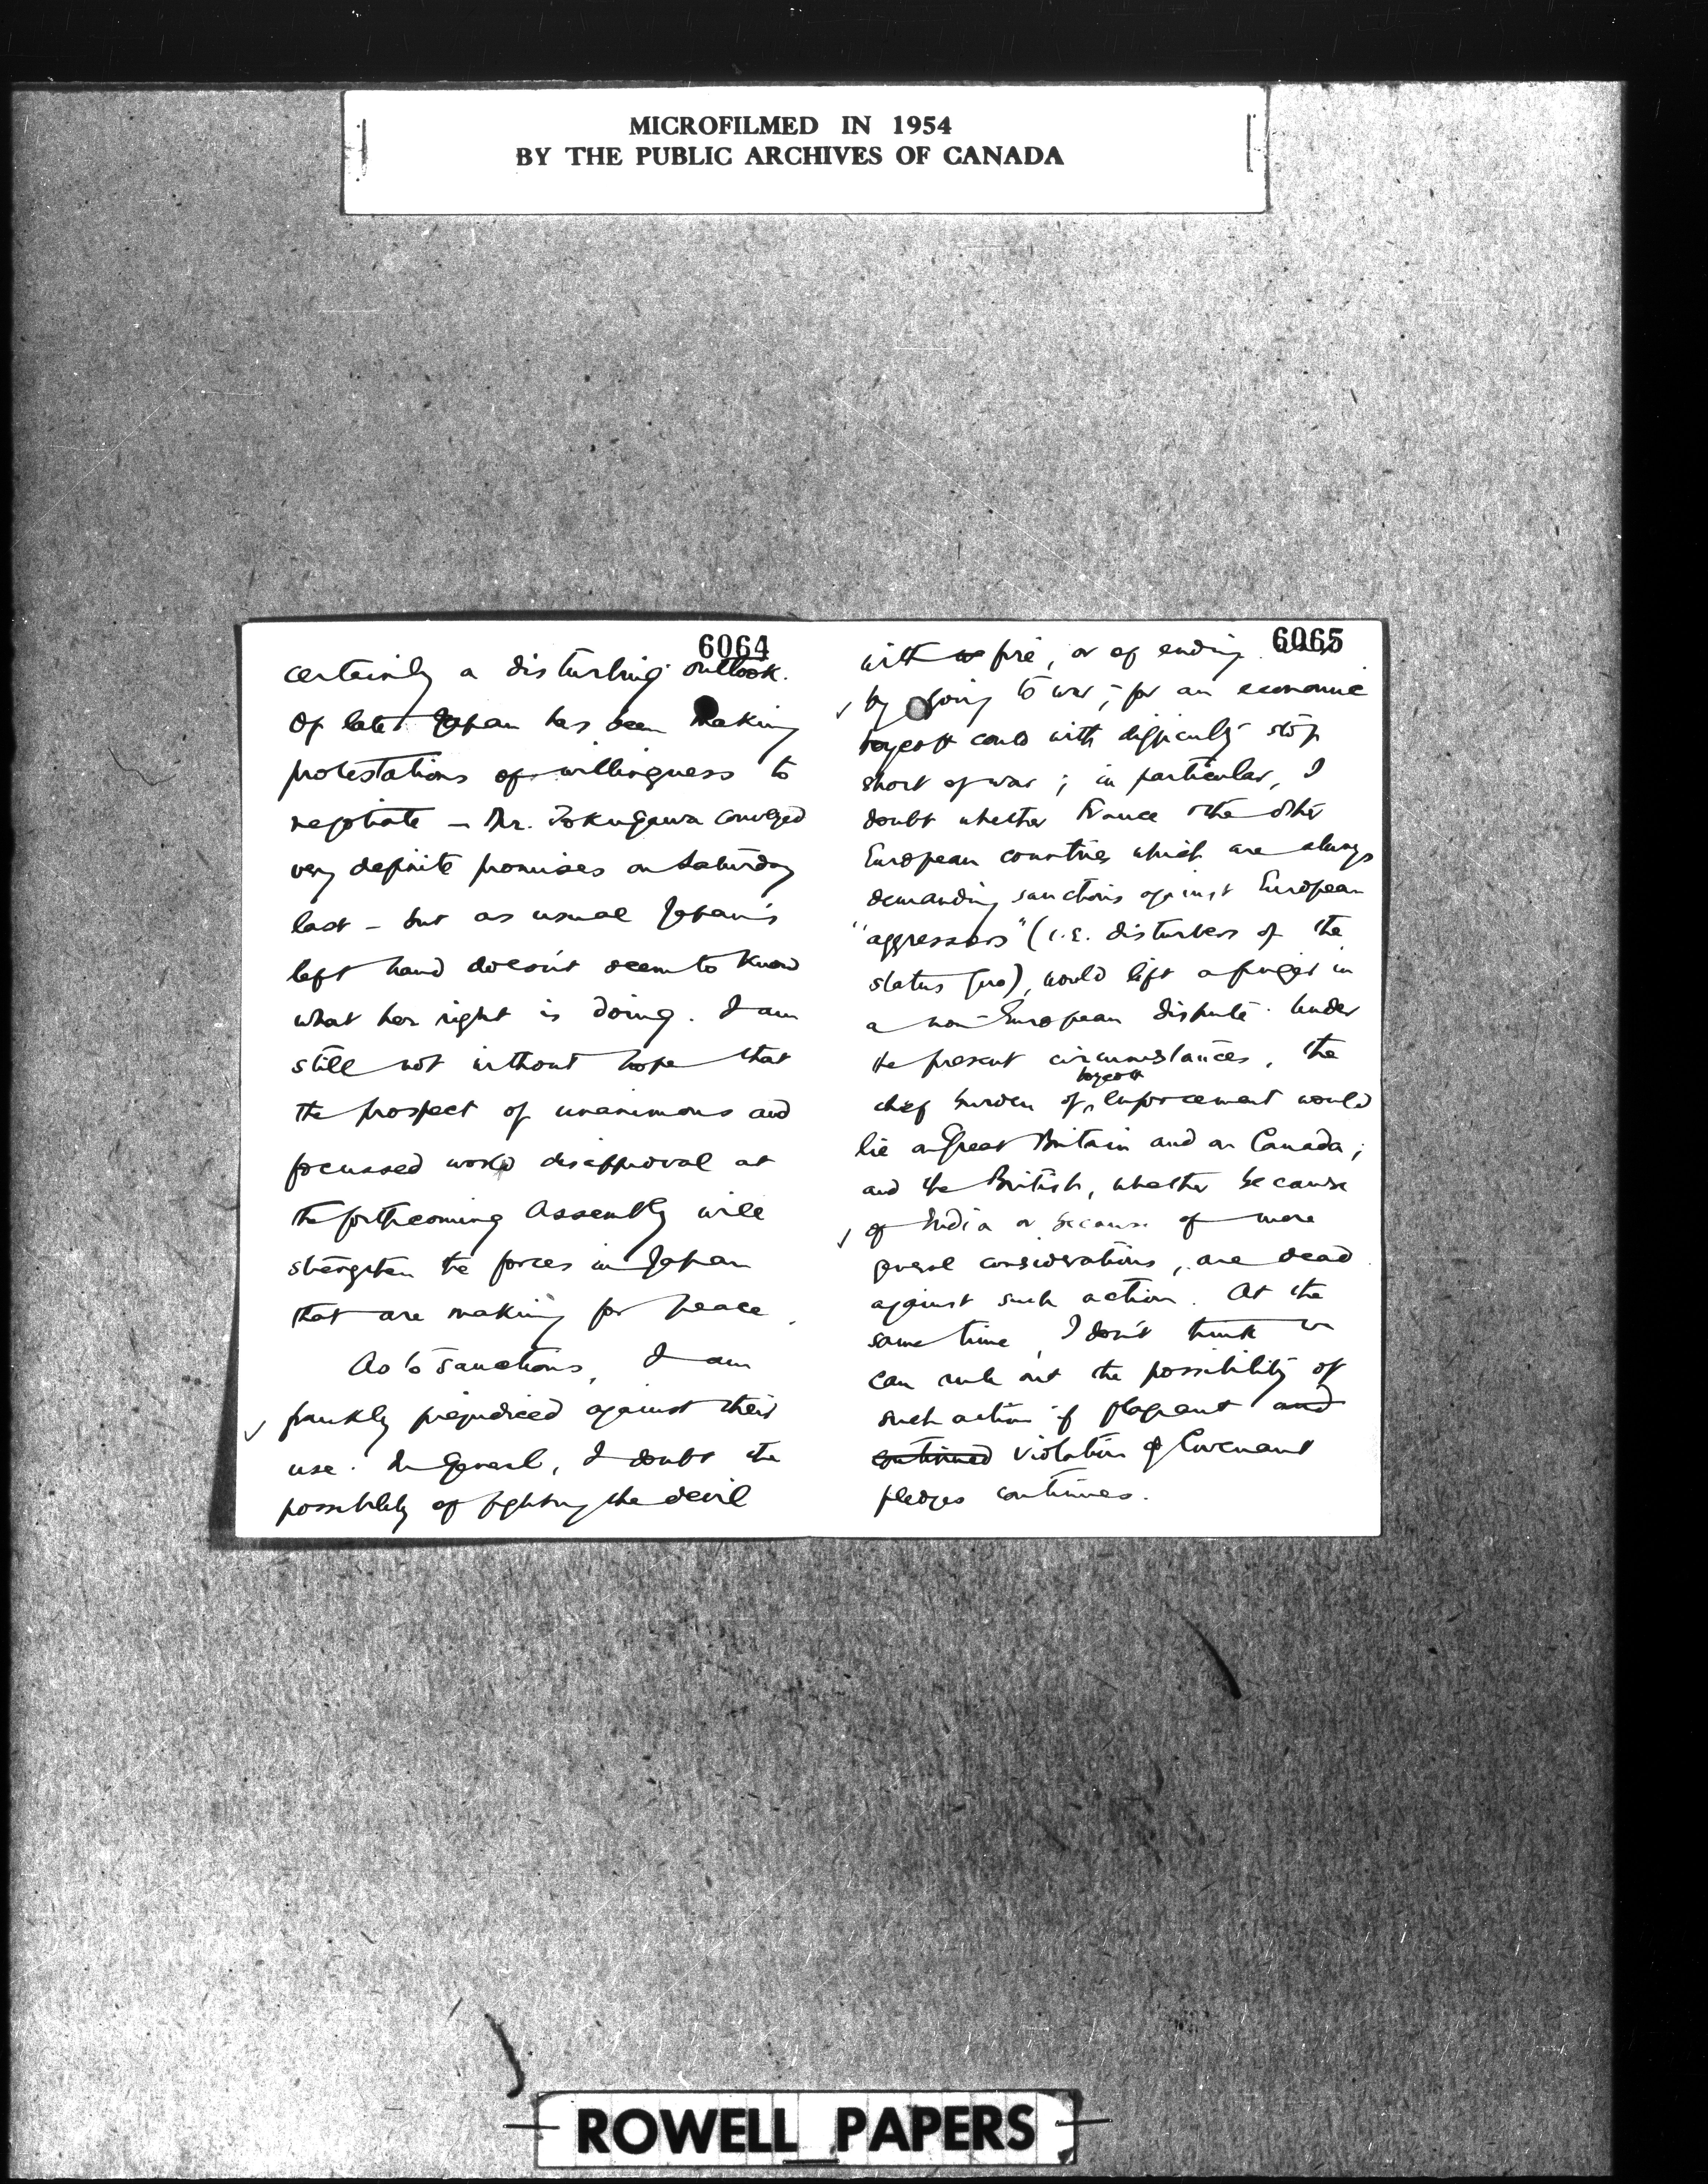 MICROFILMED IN 1954
BY THE PUBLIC ARCHIVES OF CANADA
6064
certainly a disturbing outlook.
Of late Japan has been making
protestations of willingness to
negotiate – Mr. Tokugawa conveyed
very definite promises on Saturday
last – but as usual Japan's
left hand doesn't seem to know
what her right is doing. I am
still not without hope that
the prospect of unanimous and
focussed world disapproval at
the forthcoming Assembly will
strengthen the forces in Japan
that are making for peace.
As to sanctions, I am
✓ frankly prejudiced against their
use. In general, I doubt the
possibility of fighting the devil
6065
with fire, or of ending
✓ by going to war, – for an economic
boycott could with difficulty stop
short of war; in particular, I
doubt whether France & the other
European countries which are always
demanding sanctions against European
"aggressors" (i.e. disturbers of the
status quo), would lift a finger in
a non-European dispute. Under
the present circumstances, the
chief burden of boycott enforcement would
lie on Great Britain and on Canada;
and the British, whether because
✓ of India or because of more
general considerations, are dead
against such action. At the
same time, I don't think we
can rule out the possibility of
such action if flagrant and
continued violation of Covenant
pledges continues.
ROWELL PAPERS